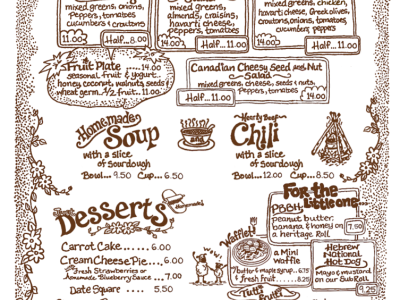 mixed greens, onions,
peppers, tomatoes
cucumbers & croutons
11.00 Half...8.00
mixed greens,
almonds, craisins,
havarti cheese,
peppers, tomatoes
14.00 Half...11.00
mixed greens, chicken,
havarti cheese, Greek olives,
croutons, onions, tomatoes,
cucumbers, peppers
14.00 Half...11.00
Fruit Plate ..... 14.00
seasonal fruit & yogurt..
honey, coconut, walnuts, seeds &
wheat germ. ½ fruit... 11.00
Canadian Cheesy Seed and Nut
Salad
mixed greens, cheese, seeds & nuts,
peppers, tomatoes
Half... 11.00
14.00
Homemade
Soup
with a slice
of Sourdough
Bowl... 9.50 Cup.... 6.50
and
Hearty Bean
Chili
with a slice
of Sourdough
Bowl... 12.00 Cup.... 8.50
Desserts
Homemade!
Carrot Cake...... 6.00
Cream Cheese Pie.... 6.00
Fresh Strawberries or
Homemade Blueberry Sauce ... 7.00
Date Square .... 5.50
For the
Little one
PB&H
peanut butter,
banana & honey on
a heritage Roll
7.50
Wafflet
a Mini
Waffle
7 butter & maple syrup.. 6.75
Fresh Fruit ... 8.25
Hebrew
National
Hot Dog
Mayo & mustard
on our SubRoll
9.25